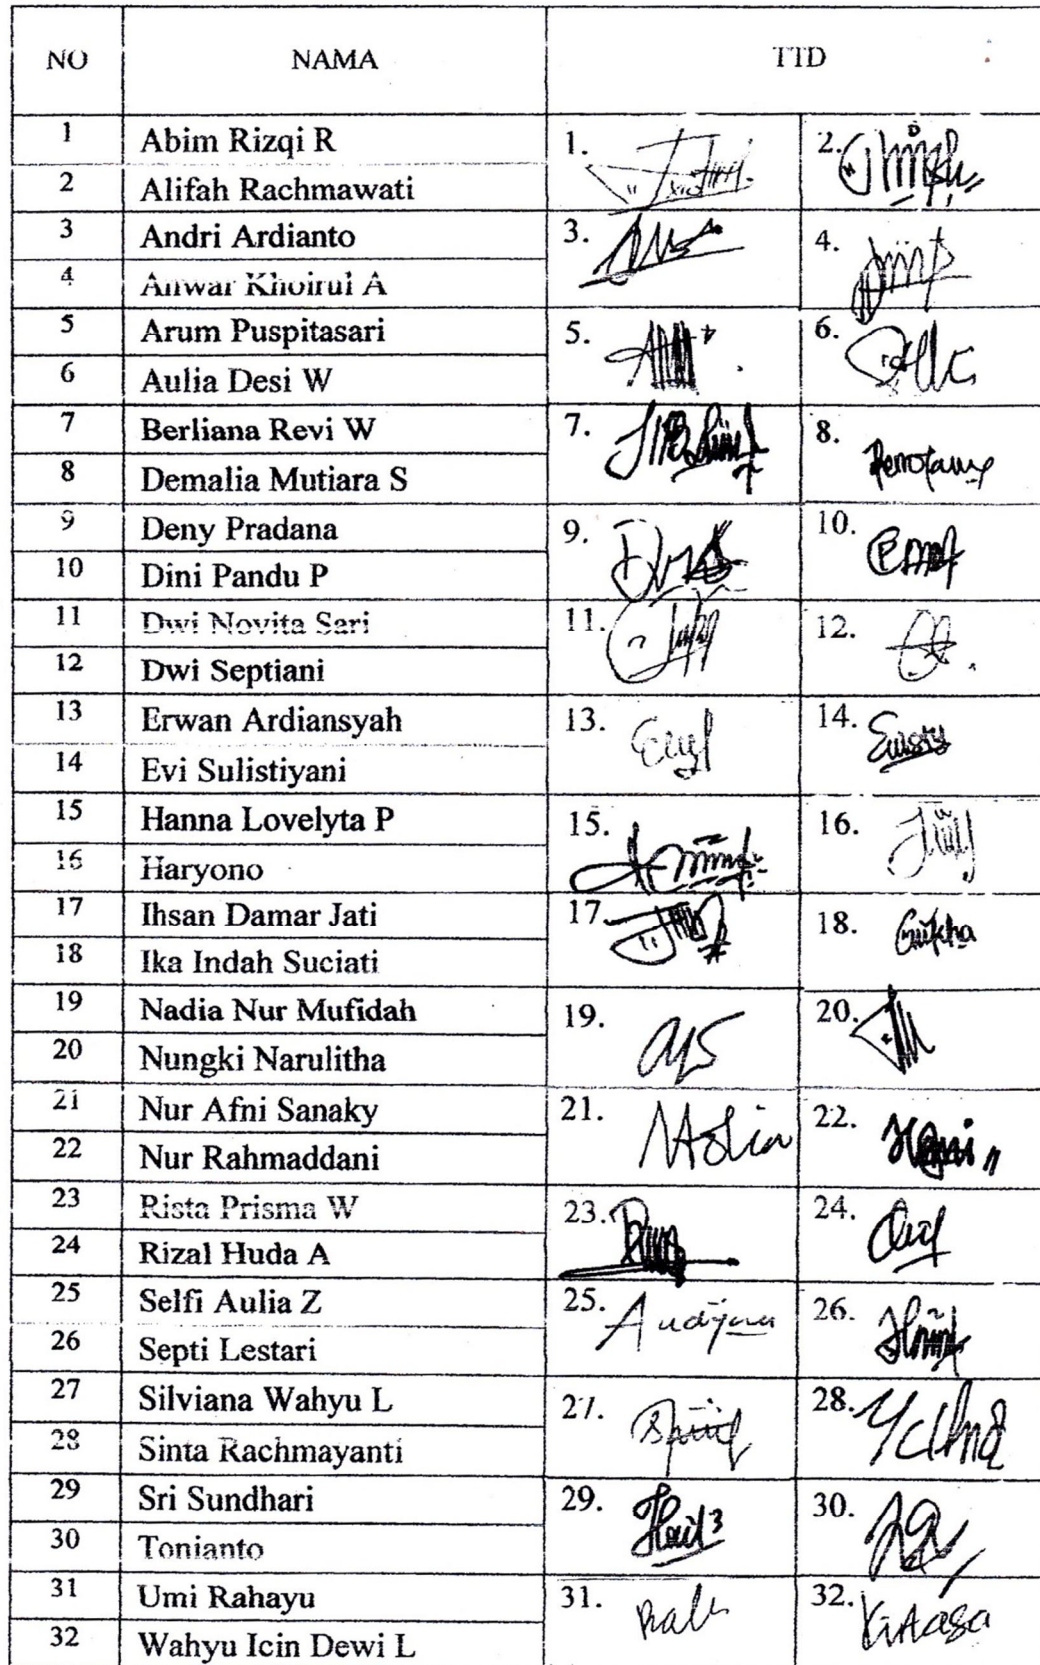 NO NAMA TTD
1 Abim Rizqi R 1. 2.
2 Alifah Rachmawati
3 Andri Ardianto 3. 4.
4 Anwar Khoirul A
5 Arum Puspitasari 5. 6.
6 Aulia Desi W
7 Berliana Revi W 7. 8.
8 Demalia Mutiara S
9 Deny Pradana 9. 10.
10 Dini Pandu P
11 Dwi Novita Sari 11. 12.
12 Dwi Septiani
13 Erwan Ardiansyah 13. 14.
14 Evi Sulistiyani
15 Hanna Lovelyta P 15. 16.
16 Haryono
17 Ihsan Damar Jati 17. 18.
18 Ika Indah Suciati
19 Nadia Nur Mufidah 19. 20.
20 Nungki Narulitha
21 Nur Afni Sanaky 21. 22.
22 Nur Rahmaddani
23 Rista Prisma W 23. 24.
24 Rizal Huda A
25 Selfi Aulia Z 25. 26.
26 Septi Lestari
27 Silviana Wahyu L 27. 28.
28 Sinta Rachmayanti
29 Sri Sundhari 29. 30.
30 Tonianto
31 Umi Rahayu 31. 32.
32 Wahyu Icin Dewi L